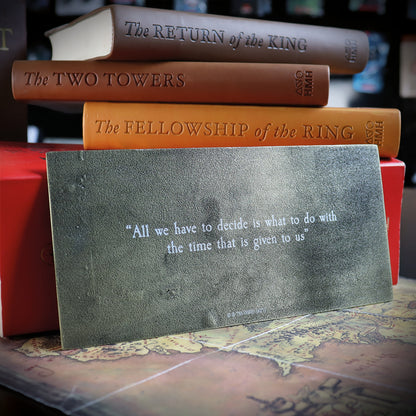 The RETURN of the KING
The TWO TOWERS
HMH
The FELLOWSHIP of the RING
HMH
“All we have to decide is what to do with
the time that is given to us”